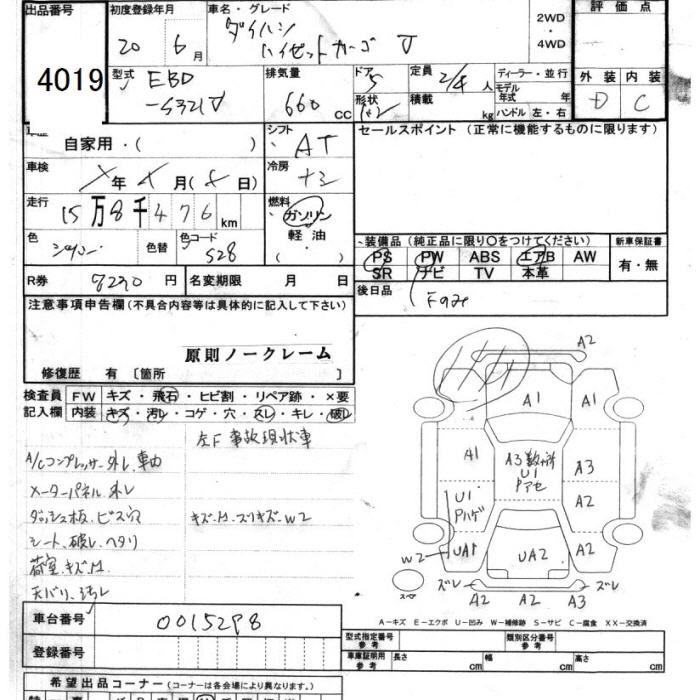 出品番号 初度登録年月 車名・グレード 2WD・4WD 評価点
4019 20年 6月 ダイハツ ハイゼットカーゴ
外装 内装
D C
型式 EBD-S321V 排気量 660cc ドア 5 形状 定員 2/4人 積載 kg ディーラー・並行 モデル年式 年 ハンドル 左・右
自家用・( ) シフト AT セールスポイント (正常に機能するものに限ります)
車検 年 月 ( 日) 冷房
走行 15万8千476km 燃料 ガソリン 軽油
色 シルバー 色替 色コード S28
装備品 (純正品に限り○をつけてください) 新車保証書
PS PW ABS エアB AW 有・無
SR ナビ TV 本革
R券 8230円 名変期限 月 日 後日品
注意事項申告欄 (不具合内容等は具体的に記入して下さい)
原則ノークレーム
修復歴 有 〔箇所 〕
検査員 FW キズ・飛石・ヒビ割・リペア跡・×要
記入欄 内装 キズ・汚レ・コゲ・穴・スレ・キレ・破レ
左F 事故現状車
A/Cコンプレッサー外レ、車内
メーターパネル外レ
ダッシュ板、ビス穴
シート、破レ、ヘタリ
荷室、キズ、凹
天バリ、汚レ
キズ・凹・スリキズ・W2
A2
A1 A1
A1 A3数ヶ所 U1 Pアセ A3
U1 Pハゲ A2
W2 UA1 UA2 A2
ズレ ズレ
スペア A2 A2 A3
A-キズ E-エクボ U-凹み W-補修跡 S-サビ C-腐食 XX-交換済
車台番号 0015298
登録番号
型式指定番号 参考 類別区分番号 参考
車庫証明用 参考 長さ cm 幅 cm 高さ cm
希望出品コーナー (コーナーは各会場により異なります)